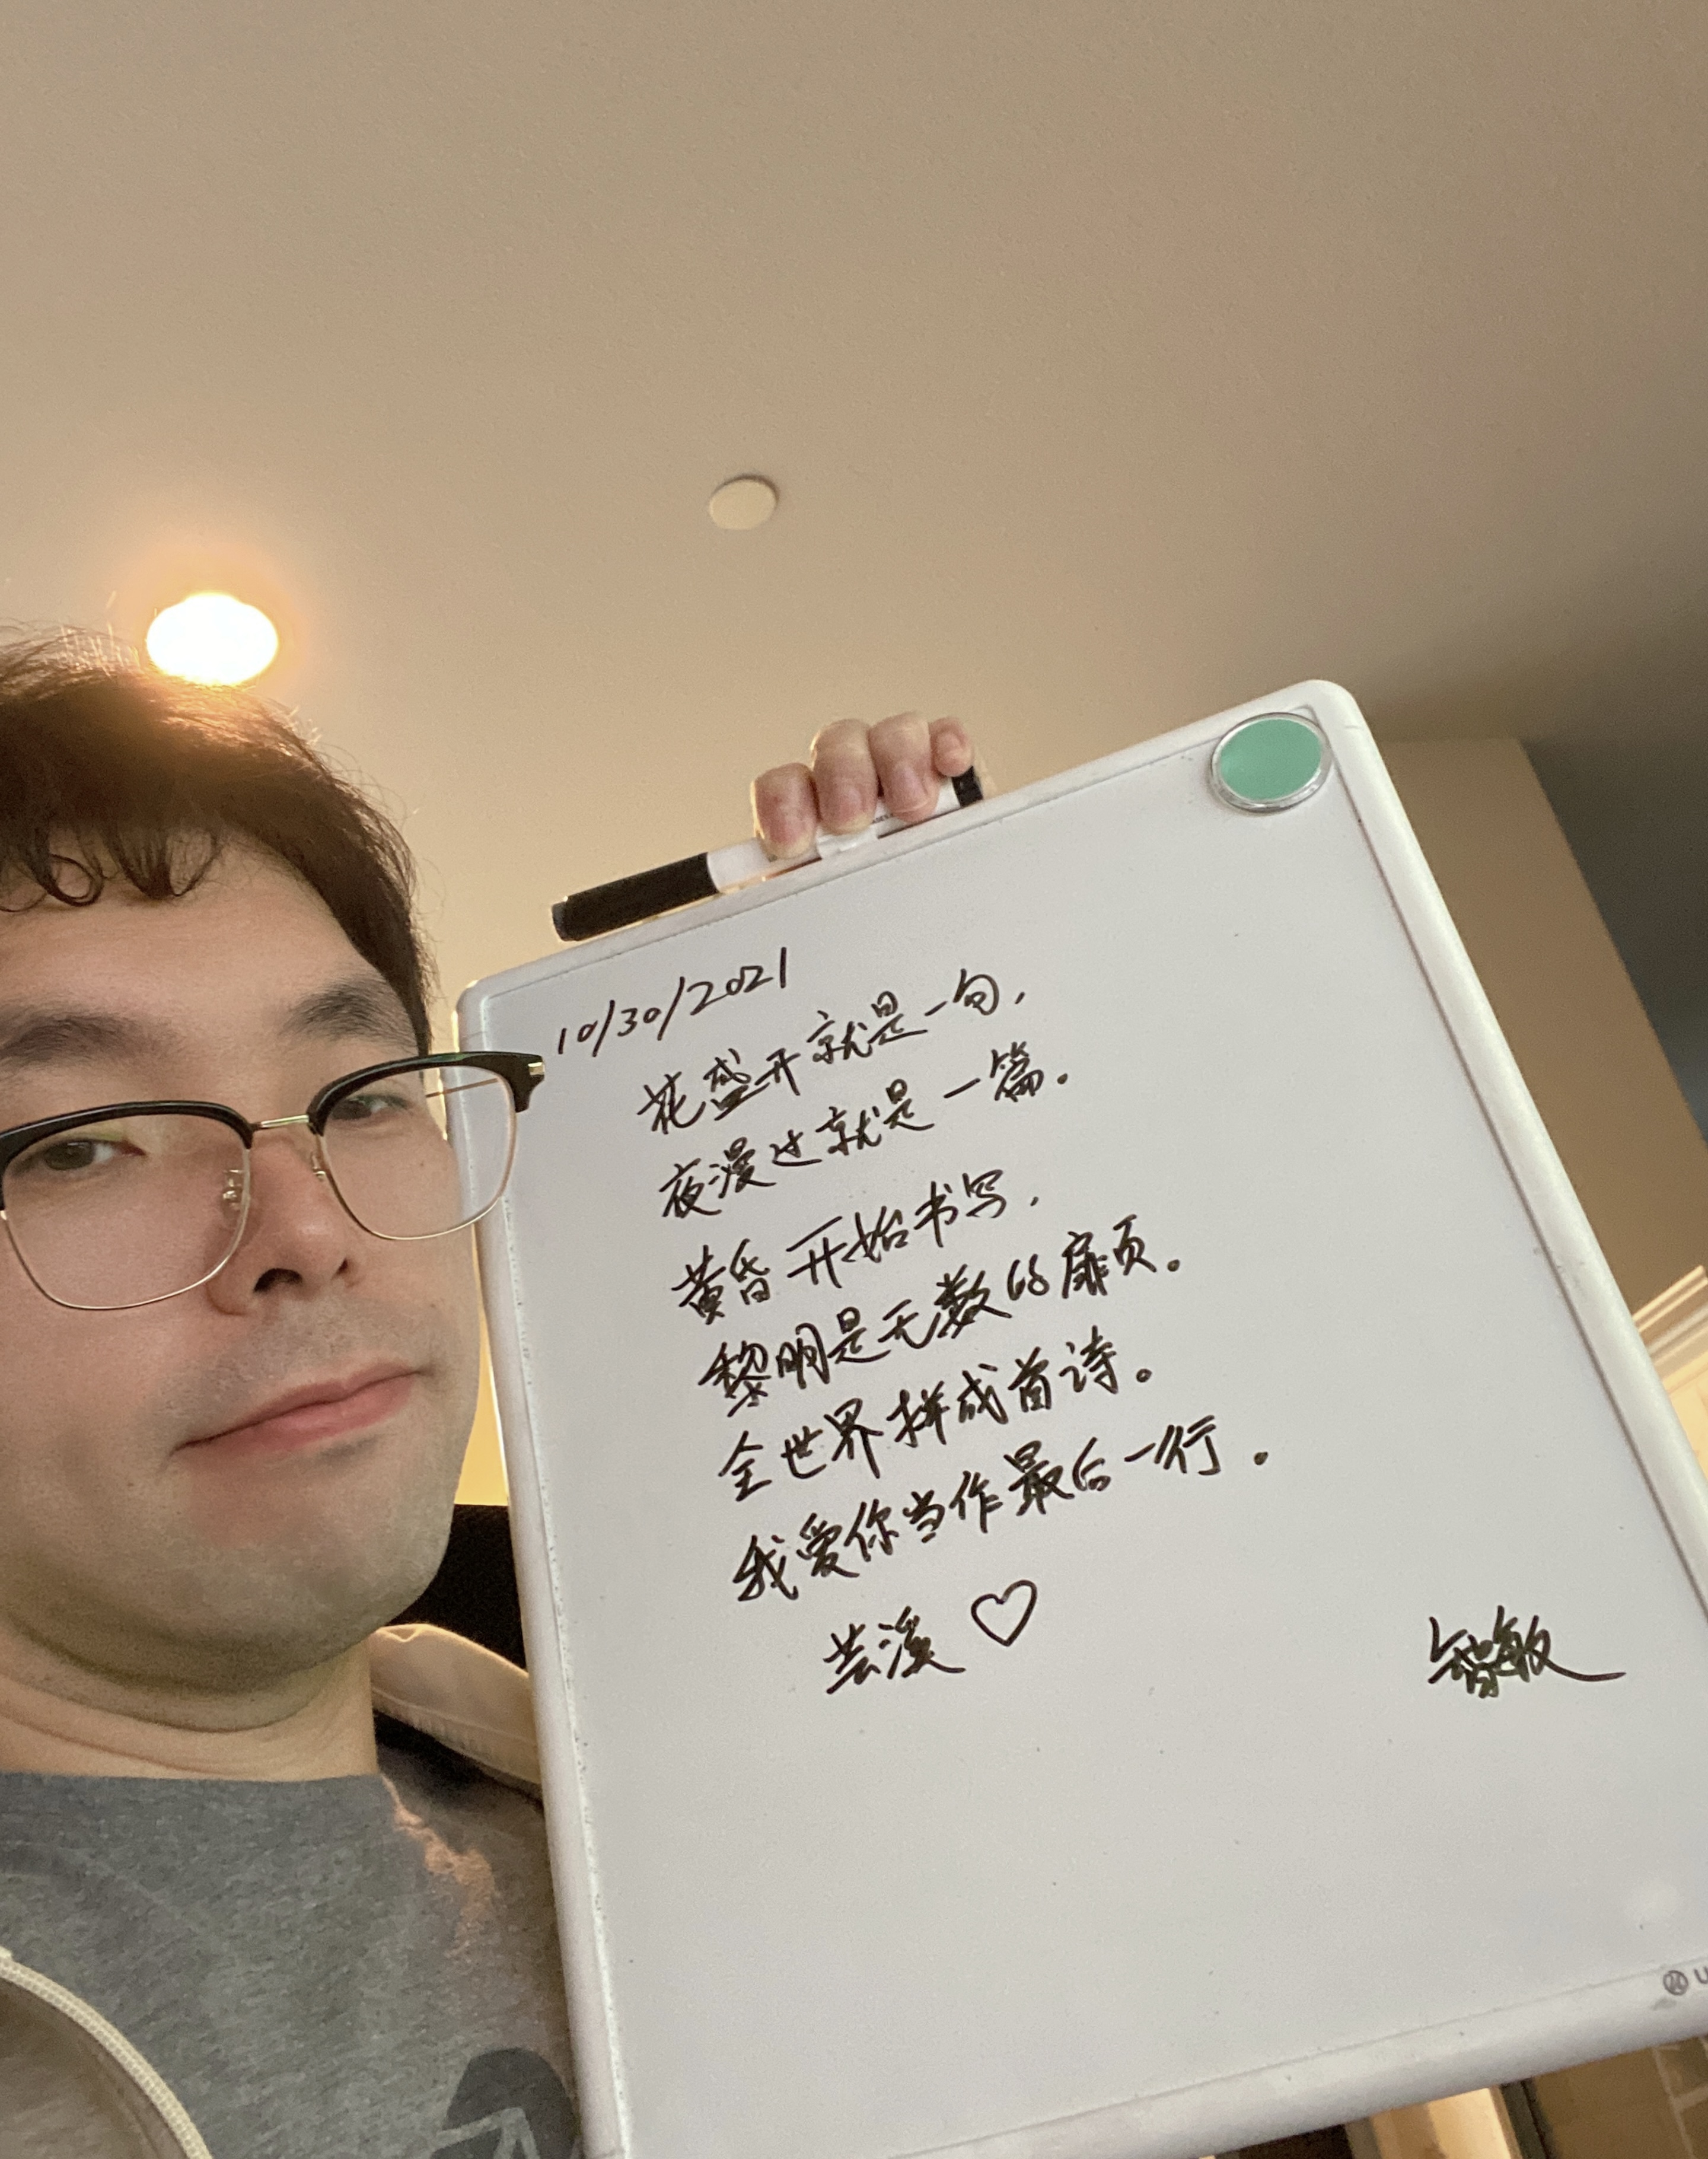 10/30/2021
花盛开就是一句，
夜漫过就是一篇.
黄昏开始书写，
黎明是无数的扉页。
全世界拼成首诗。
我爱你当作最后一行.
芸溪♡
敏